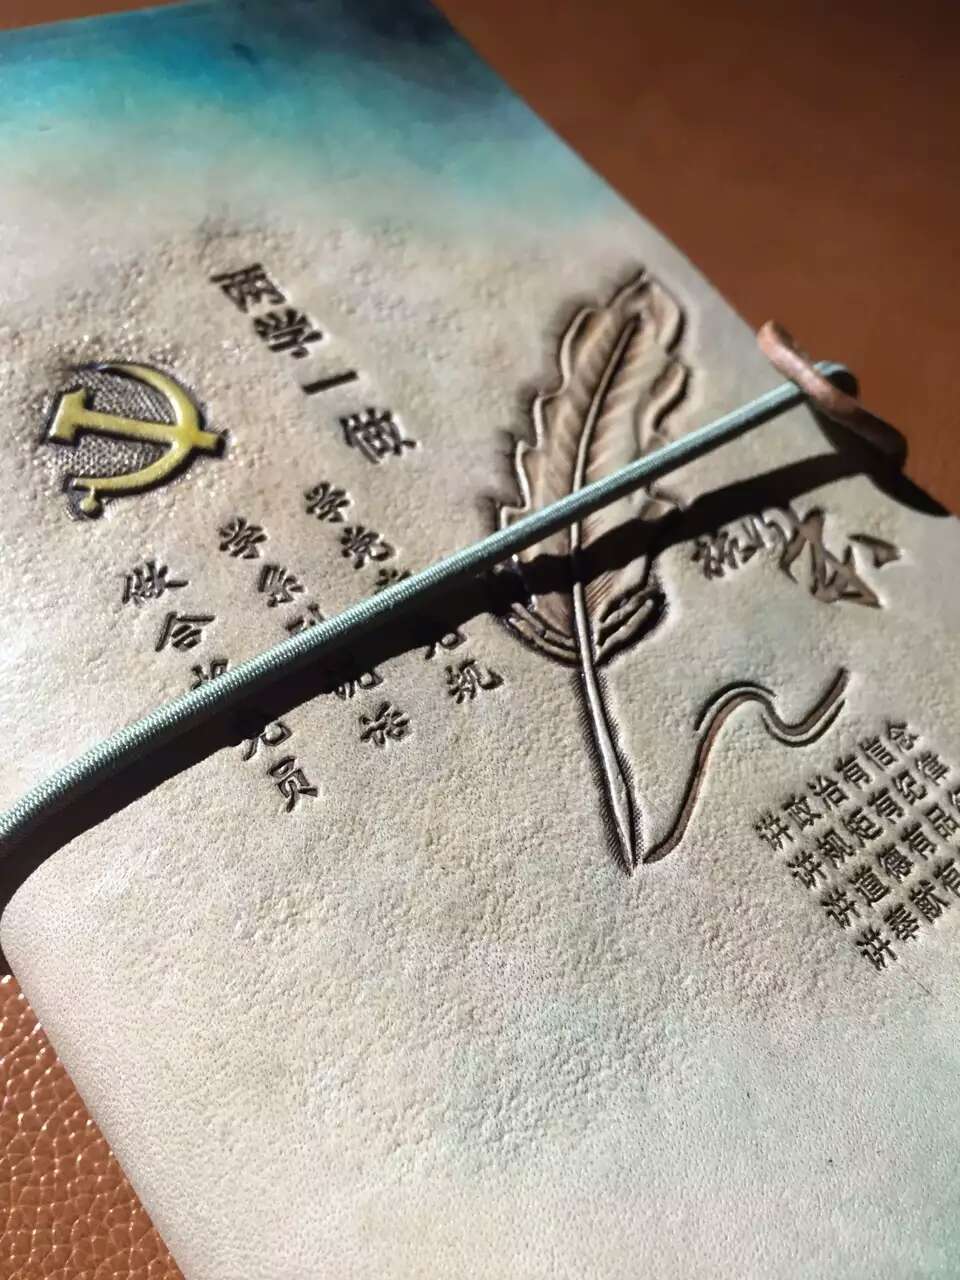 两学一做
学党章党规
学系列讲话
做合格党员
讲政治有信念
讲规矩有纪律
讲道德有品
讲奉献有